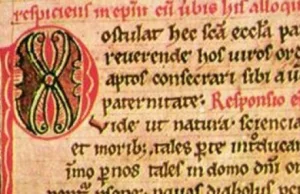 respiciens in epm cu urbis his alloqu
Postulat hec sca eccla pa
reverende hos viros or
aptos consecrari sibi a u
paternitate. Responsio e
Vide ut natura. sciencia
et morib; tales p te introducan
immo p nos tales in domo dni or